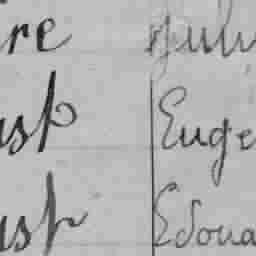 re Juli
ust Euge
ust Edoua